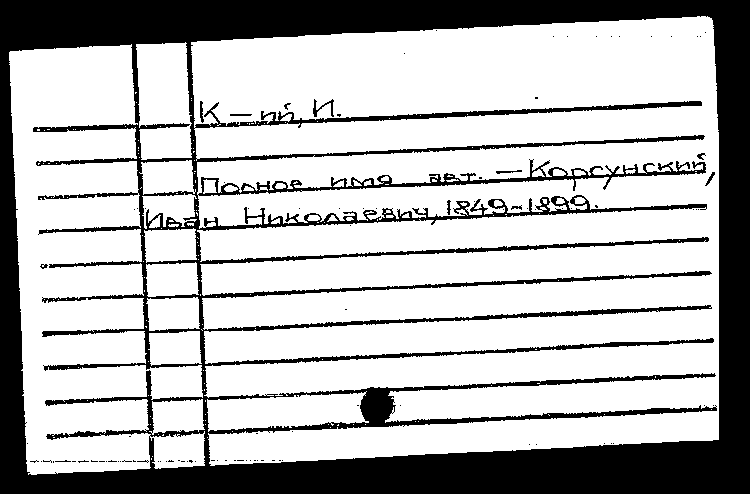 К – ий, И.
Полное имя авт. – Корсунский,
Иван Николаевич, 1849-1899.